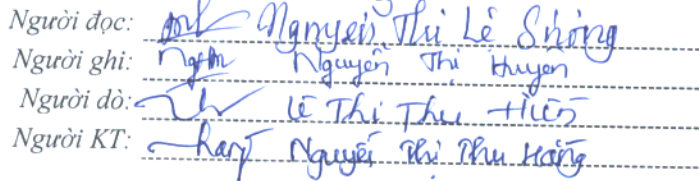 Người đọc: Nguyễn Thị Lê Sương
Người ghi: Nguyễn Thị Huyền
Người dò: Lê Thị Thu Hiền
Người KT: Nguyễn Thị Thu Hằng